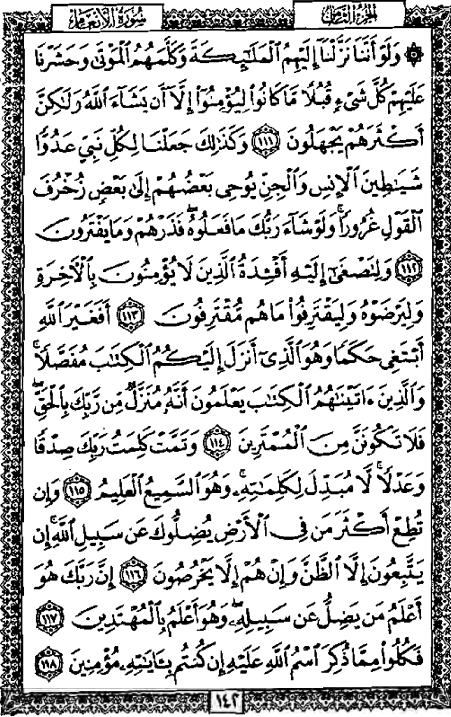 سُورَةُ الأَنْعَامِ الجُزْءُ الثَّامِنُ
۞ وَلَوْ أَنَّنَا نَزَّلْنَا إِلَيْهِمُ الْمَلَـٰٓئِكَةَ وَكَلَّمَهُمُ الْمَوْتَىٰ وَحَشَرْنَا
عَلَيْهِمْ كُلَّ شَىْءٍ قُبُلًا مَّا كَانُوا لِيُؤْمِنُوٓا إِلَّآ أَن يَشَآءَ اللَّهُ وَلَـٰكِنَّ
أَكْثَرَهُمْ يَجْهَلُونَ ١١١ وَكَذَٰلِكَ جَعَلْنَا لِكُلِّ نَبِيٍّ عَدُوًّا
شَيَـٰطِينَ الْإِنسِ وَالْجِنِّ يُوحِى بَعْضُهُمْ إِلَىٰ بَعْضٍ زُخْرُفَ
الْقَوْلِ غُرُورًا ۚ وَلَوْ شَآءَ رَبُّكَ مَا فَعَلُوهُ ۖ فَذَرْهُمْ وَمَا يَفْتَرُونَ
١١٢ وَلِتَصْغَىٰٓ إِلَيْهِ أَفْـِٔدَةُ الَّذِينَ لَا يُؤْمِنُونَ بِالْـَٔاخِرَةِ
وَلِيَرْضَوْهُ وَلِيَقْتَرِفُوا مَا هُم مُّقْتَرِفُونَ ١١٣ أَفَغَيْرَ اللَّهِ
أَبْتَغِى حَكَمًا وَهُوَ الَّذِىٓ أَنزَلَ إِلَيْكُمُ الْكِتَـٰبَ مُفَصَّلًا ۚ
وَالَّذِينَ ءَاتَيْنَـٰهُمُ الْكِتَـٰبَ يَعْلَمُونَ أَنَّهُۥ مُنَزَّلٌ مِّن رَّبِّكَ بِالْحَقِّ ۖ
فَلَا تَكُونَنَّ مِنَ الْمُمْتَرِينَ ١١٤ وَتَمَّتْ كَلِمَتُ رَبِّكَ صِدْقًا
وَعَدْلًا ۚ لَّا مُبَدِّلَ لِكَلِمَـٰتِهِۦ ۚ وَهُوَ السَّمِيعُ الْعَلِيمُ ١١٥ وَإِن
تُطِعْ أَكْثَرَ مَن فِى الْأَرْضِ يُضِلُّوكَ عَن سَبِيلِ اللَّهِ ۚ إِن
يَتَّبِعُونَ إِلَّا الظَّنَّ وَإِنْ هُمْ إِلَّا يَخْرُصُونَ ١١٦ إِنَّ رَبَّكَ هُوَ
أَعْلَمُ مَن يَضِلُّ عَن سَبِيلِهِۦ ۖ وَهُوَ أَعْلَمُ بِالْمُهْتَدِينَ ١١٧
فَكُلُوا مِمَّا ذُكِرَ اسْمُ اللَّهِ عَلَيْهِ إِن كُنتُم بِـَٔايَـٰتِهِۦ مُؤْمِنِينَ ١١٨
١٤٢